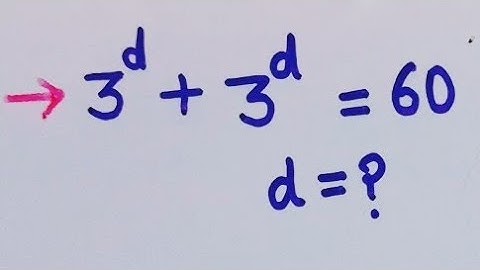 → 3^d + 3^d = 60
d = ?